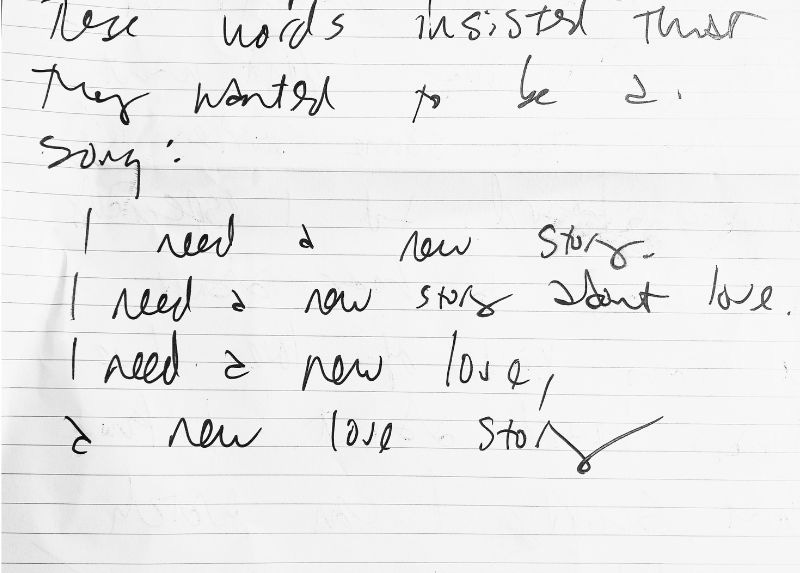 These words insisted that
they wanted to be a.
song:
I need a new story.
I need a new story about love.
I need a new love,
a new love story